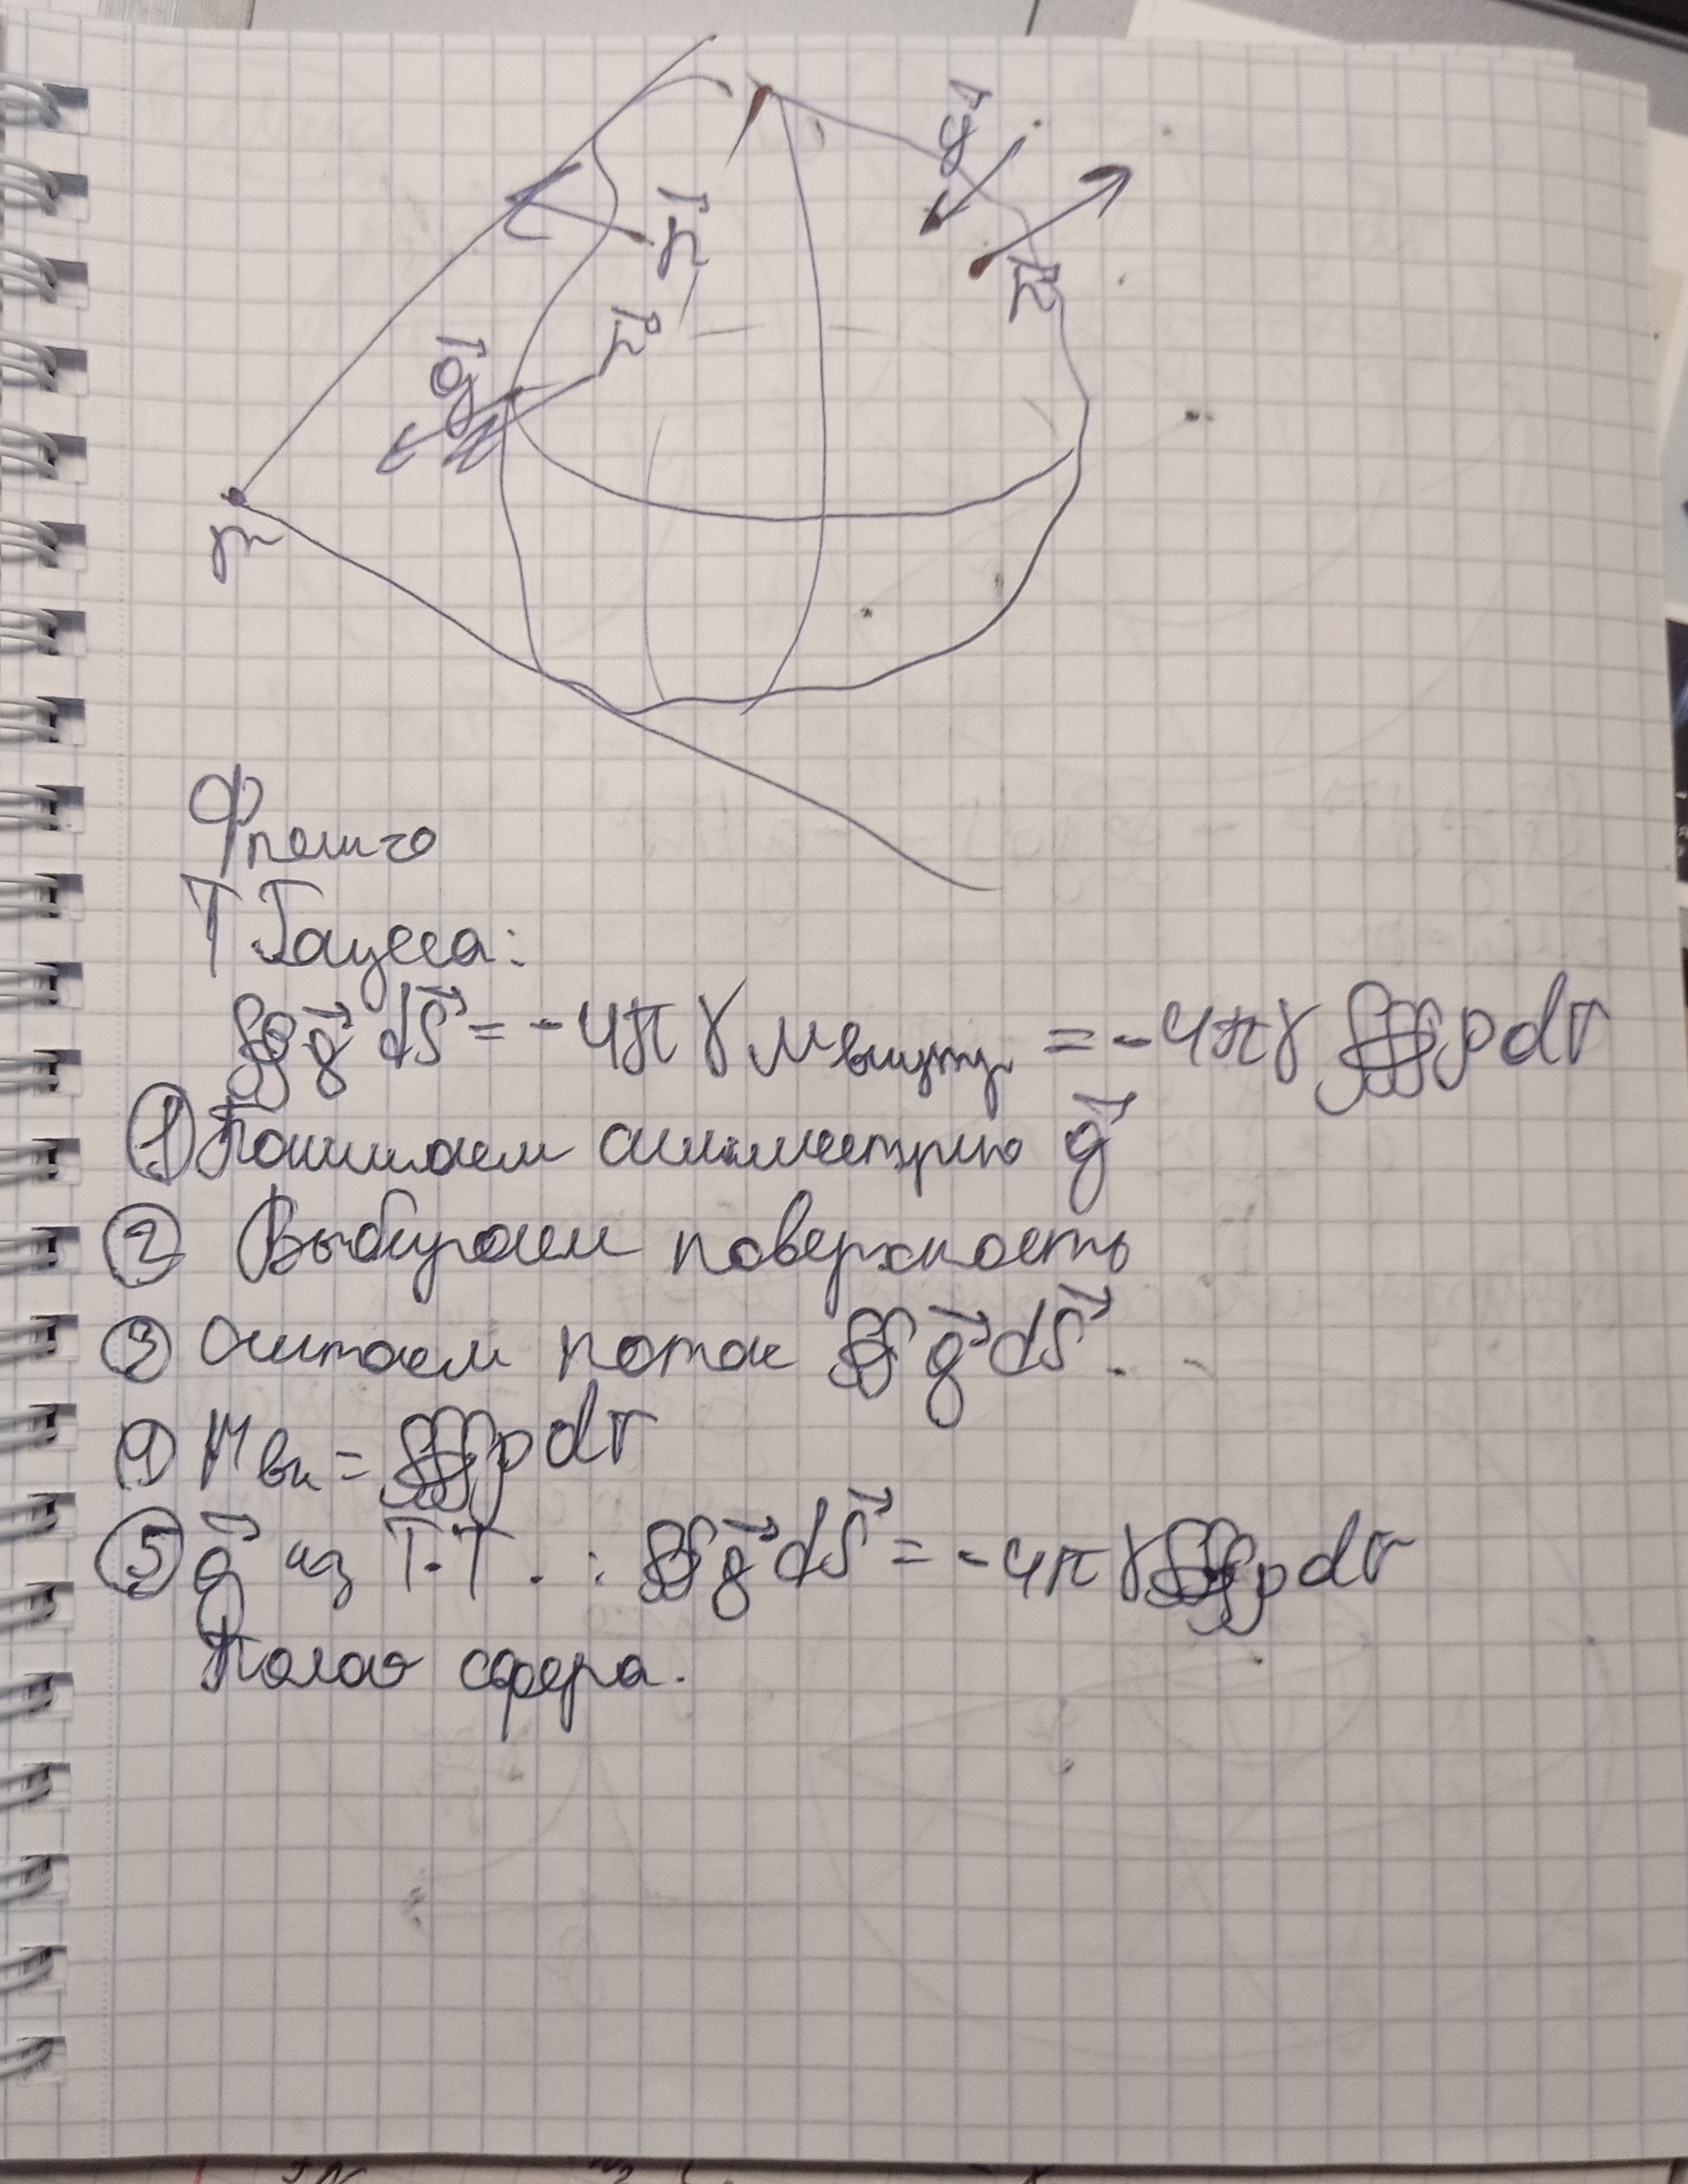 g⃗
n⃗
n⃗
n⃗
g⃗
m
Т Гаусса:
∯ g⃗ dS⃗ = -4πγ Mвнутр = -4πγ ∭ρdv
① Понимаем симметрию g⃗
② Выбираем поверхность
③ Считаем поток ∯ g⃗ dS⃗.
④ Mвн = ∭ρdv
⑤ g⃗ из Т.Г. : ∯ g⃗ dS⃗ = -4πγ∭ρdv
Полая сфера.